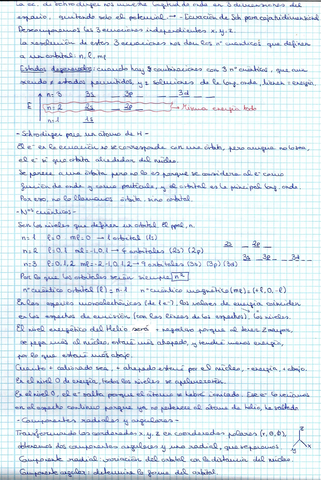 La ec. de Schrodinger nos muestra longitud de onda en 3 dimensiones del
espacio, quitando solo el potencial → Ecuación de Sch para caja tridimensional
Descomponemos las 3 ecuaciones independientes x, y, z.
La resolución de estas 3 ecuaciones nos dan los nº cuánticos que definen
a un orbital: n, l, ml
Estados degenerados: cuando hay combinaciones con 3 nº cuánticos, que aun
siendo ≠ estados permitidos, y ≠ soluciones de la long. onda, tienen = energía.
n=3 3s 3p 3d
E n=2 2s 2p Misma energía todo
n=1 1s
- Schrodinger para un átomo de H -
El e⁻ en la ecuación no se corresponde con una órbita, pero aunque no lo sea,
el e⁻ si que orbita alrededor del núcleo.
Se parece a una órbita pero no lo es porque se considera al e⁻ como
función de onda y como partícula, y el orbital es la principal long. onda.
Por eso, no lo llamamos órbita, sino orbital.
- Nos cuánticos -
Son los niveles que definen un orbital. El ppal, n
n=1 l=0 ml=0 → 1 orbital (1s)
n=2 l=0,1 ml=-1,0,1 → 4 orbitales (2s) (2p) 2s 2p
n=3 l=0,1,2 ml=-2,-1,0,1,2 → 9 orbitales (3s) (3p) (3d) 3s 3p 3d
Por lo que los orbitales serán siempre n²
nº cuántico orbital (l) = n-1 nº cuántico magnético (ml) = (+l, 0, -l)
En las especies monoelectrónicas (de 1 e⁻), los valores de energía coinciden
en los espectros de emisión (con las líneas de los espectros), los niveles.
El nivel energético del Helio será + negativo porque al tener Z mayor,
se pega más al núcleo, estará más atrapado, y tendrá menos energía,
por lo que estará más abajo.
Cuanto + atraído sea, + atrapado estará por el núcleo, - energía, + abajo.
En el nivel 0 de energía, todos los niveles se aglomerarán.
En el nivel 0, el e⁻ salta porque el átomo se habrá ionizado. Ese e⁻ lo veríamos
en el espectro continuo porque ya no pertenece al átomo de helio, ha saltado
- Componentes radiales y angulares -
Transformando las coordenadas x, y, z en coordenadas polares (r, θ, ϕ),
obtenemos dos componentes angulares y una radial, que separamos
Componente radial: variación del orbital con la distancia del núcleo.
Componente angular: determina la forma del orbital.